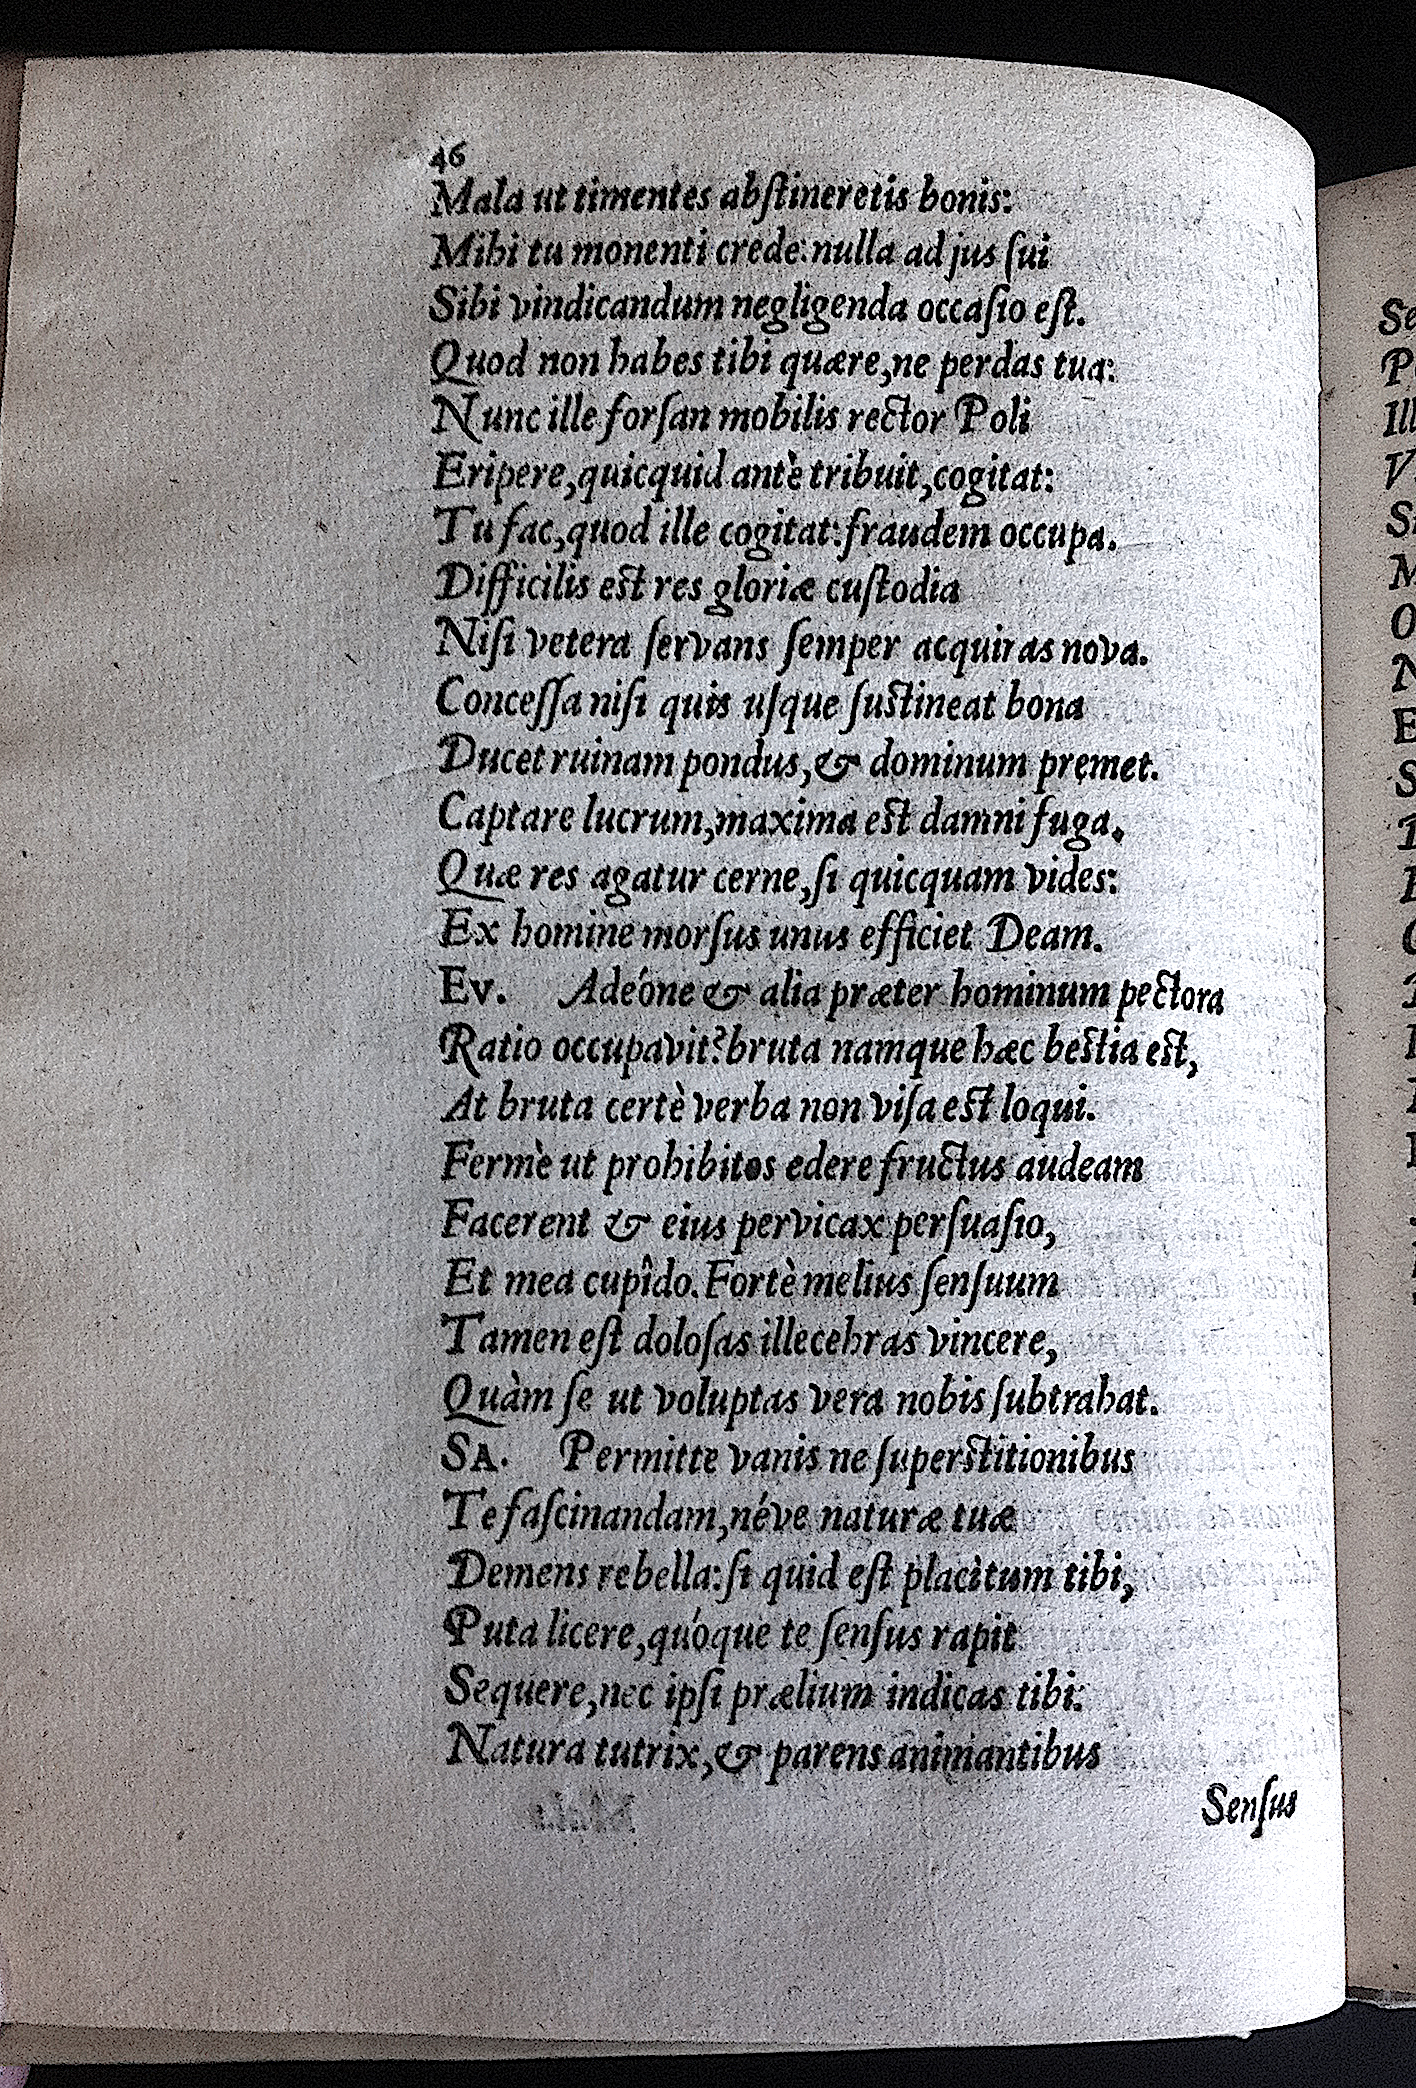 46
Mala ut timentes abſtineretis bonis:
Mihi tu monenti crede: nulla ad jus ſui
Sibi vindicandum negligenda occaſio eſt.
Quod non habes tibi quære, ne perdas tua:
Nunc ille forſan mobilis rector Poli
Eripere, quicquid antè tribuit, cogitat:
Tu fac, quod ille cogitat: fraudem occupa.
Difficilis eſt res gloriæ cuſtodia
Niſi vetera ſervans ſemper acquiras nova.
Conceſſa niſi quis uſque ſuſtineat bona
Ducet ruinam pondus, & dominum premet.
Captare lucrum, maxima eſt damni fuga.
Quæ res agatur cerne, ſi quicquam vides:
Ex homine morſus unus efficiet Deam.
Ev. Adeóne & alia præter hominum pectora
Ratio occupavit? bruta namque hæc beſtia eſt,
At bruta certè verba non viſa eſt loqui.
Fermè ut prohibitos edere fructus audeam
Facerent & eius pervicax perſuaſio,
Et mea cupîdo. Fortè melius ſenſuum
Tamen eſt doloſas illecebras vincere,
Quàm ſe ut voluptas vera nobis ſubtrahat.
SA. Permitte vanis ne ſuperſtitionibus
Te faſcinandam, néve naturæ tuæ
Demens rebella: ſi quid eſt placìtum tibi,
Puta licere, quóque te ſenſus rapit
Sequere, nec ipſi prælium indicas tibi:
Natura tutrix, & parens animantibus
Senſus